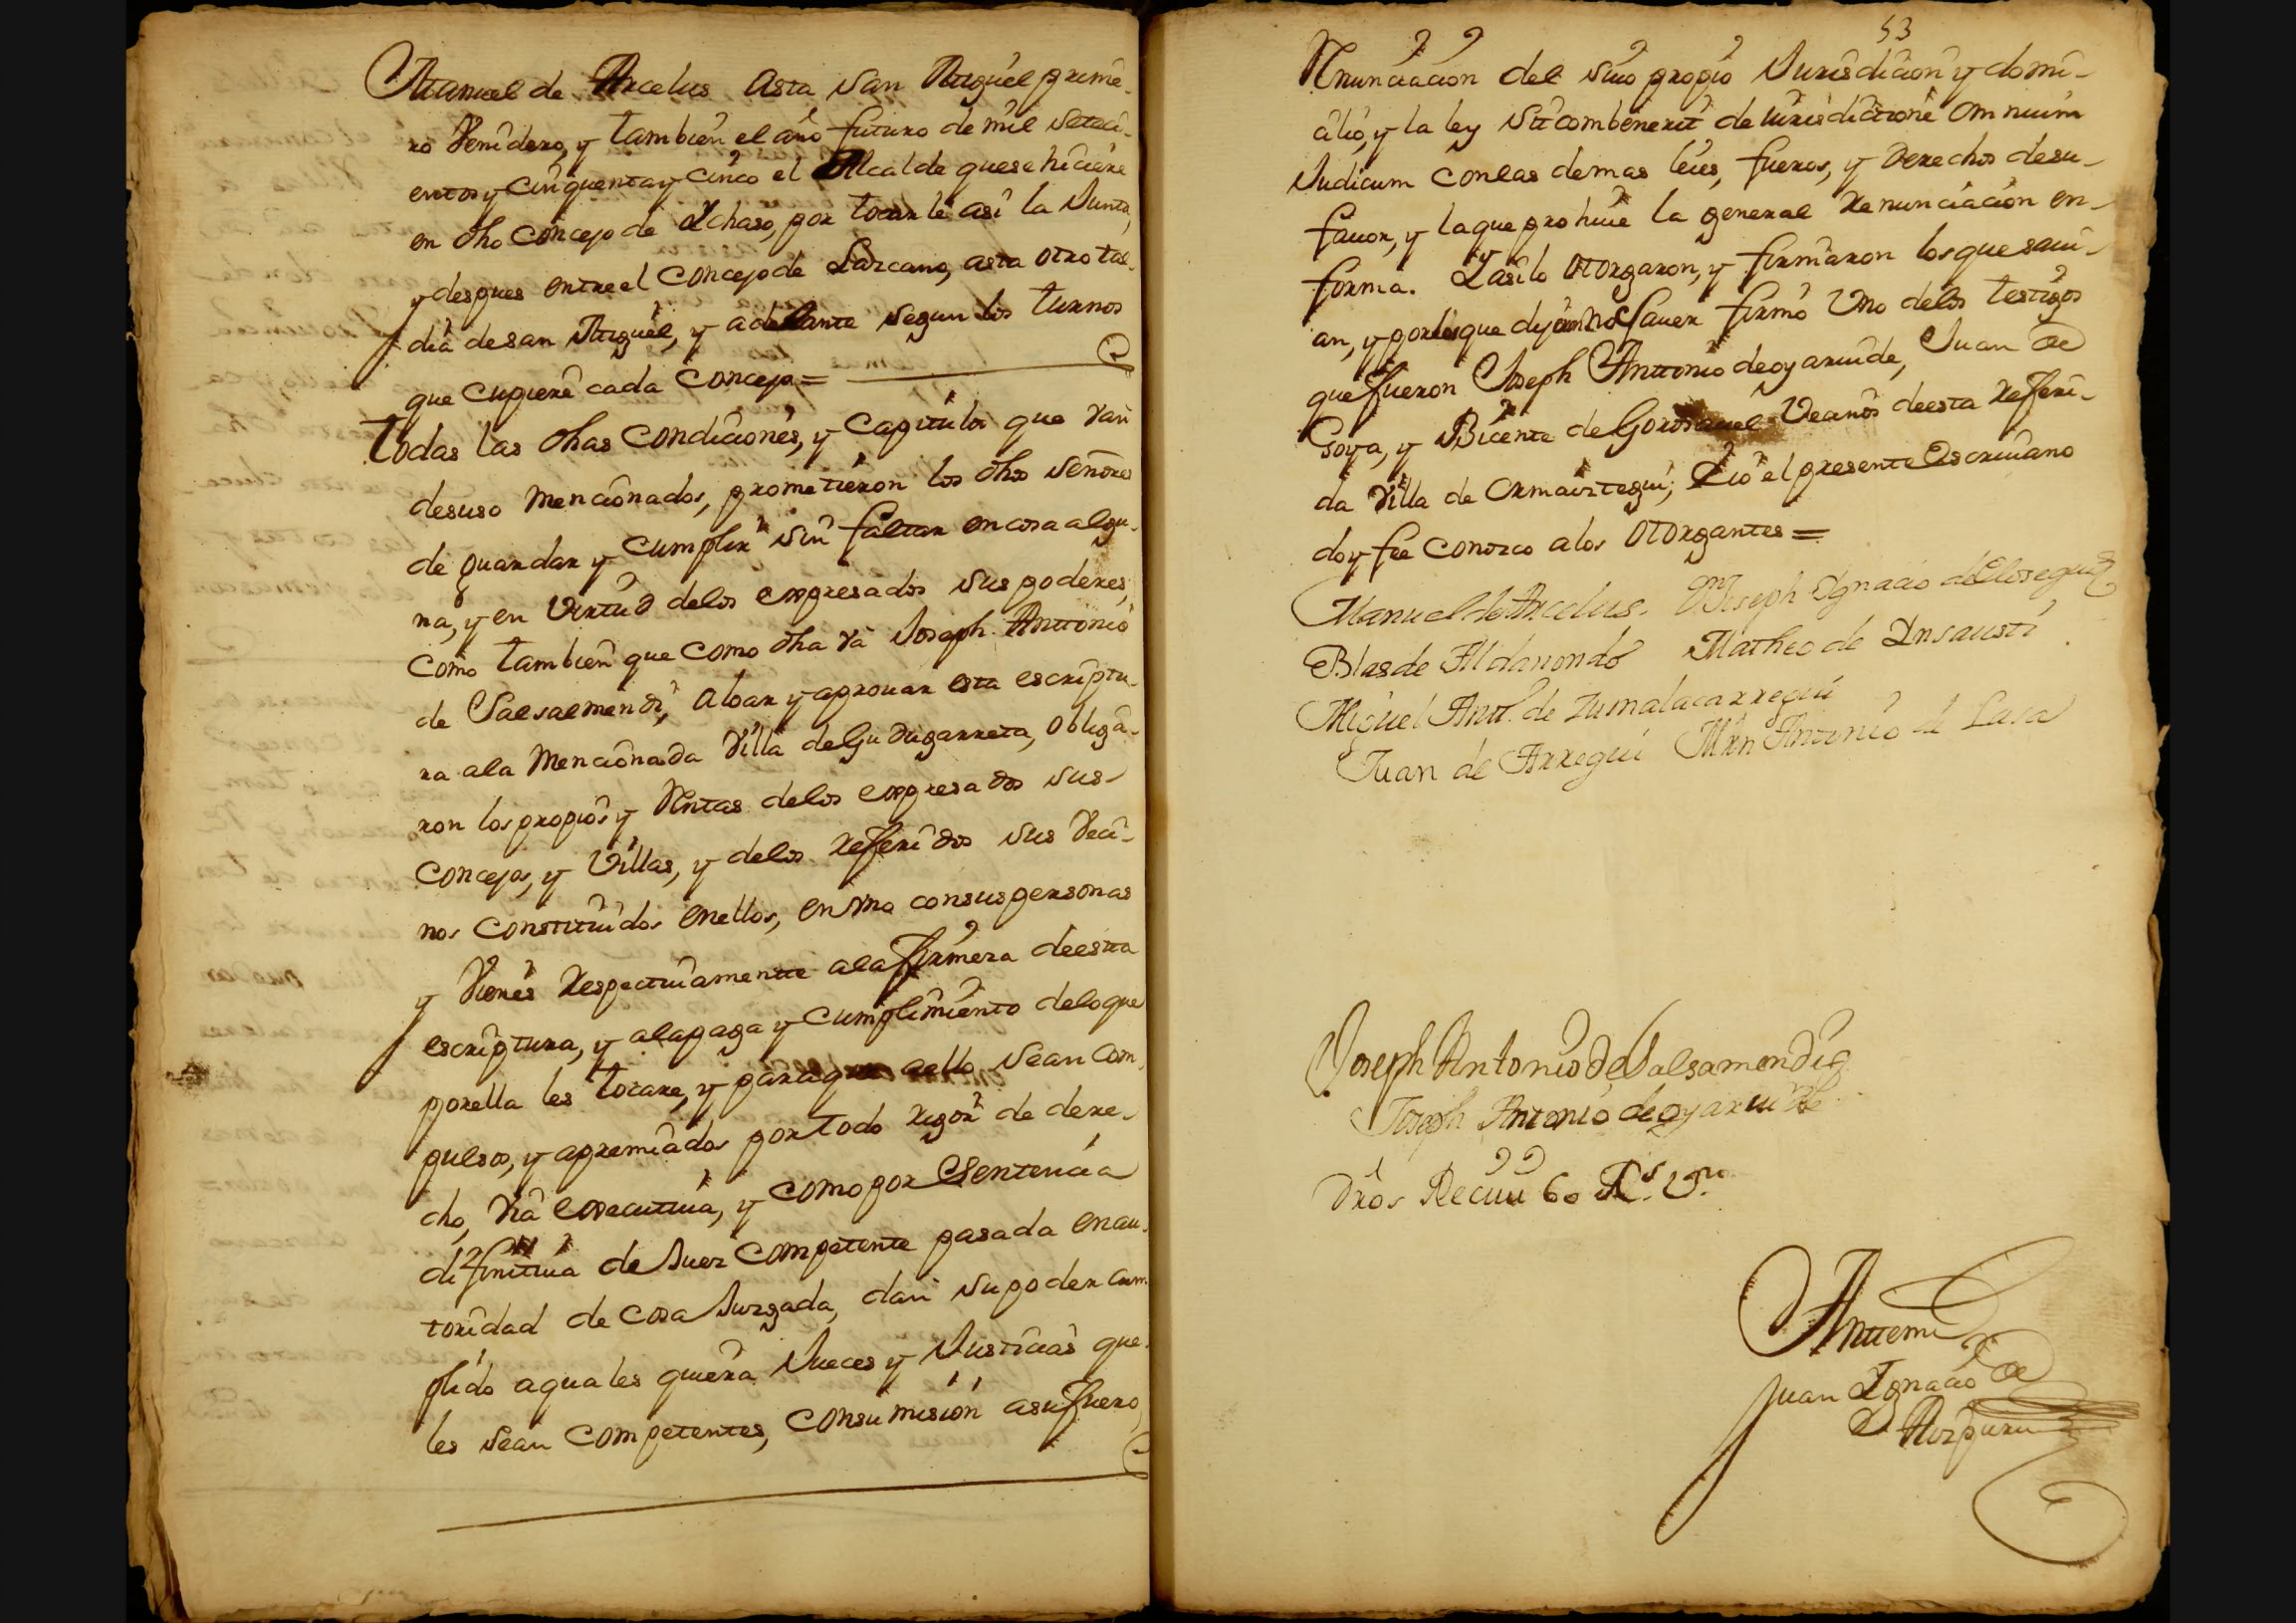 Manuel de Arcelus asta san Miguel prime-
ro Venidero, y tambien el año futuro de mil seteci-
entos y cinquenta y cinco el Alcalde que se hiciere
en dho concejo de Ychaso, por tocarle asi la Junta,
y despues entre el concejo de Lazcano, asta otro tal
dia de san Miguel, y adelante segun los turnos
que cupiere cada concejo=
Todas las dhas condiciones, y capitulos que van
desuso mencionados, prometieron los dhos señores
de guardar y cumplir sin faltar en cosa algu-
na, y en virtud delos expresados sus poderes,
como tambien que como dha va Joseph Anttonio
de Salsalmendi, aloar y aprouar esta escriptu-
ra ala mencionada Villa de Gudugarreta, obliga-
ron los propios y Rentas delos expresados sus
concejos, y Villas, y delos referidos sus Veci-
nos constituidos enellos, en Vno consus personas
y Vienes Respectiuamentte ala firmeza de estta
escriptura, y ala paga y cumplimiento delo que
porella les tocare, y para que aello sean com-
pulsos, y apremiados por todo rigor de dere-
cho, Via executiua, y como por Sentencia
difinitiua de Juez competente pasada en au-
toridad de cosa Juzgada, dan su poder cum-
plido aquales quiera Jueces y Justicias que
les sean competentes, consumision asufuero,
53
Renunciacion del suio propio Jurisdicion y domi-
cilio, y la ley sit combenerit de iurisdictione omnium
Judicum con las demas leies, fueros, y derechos desu
fauor, y la que prohiue la general renunciacion en
forma. Y asi lo otorgaron, y firmaron los que saui-
an, y por los que dijeron no sauer firmo Vno delos testigos
que fueron Joseph Anttonio de oyaruide, Juan de
Goya, y Bicente de Gorosauel Vecinos de esta referi-
da Villa de Ormaiztegui; Yo el presente Escriuano
doy fee conozco alos otorgantes=
Manuel de Arcelus. Joseph Ygnacio de Elosegui
Blas de Aldanondo Matheo de Ynsausti
Miguel Antt. de Zumalacarregui
Juan de Arregui Mrn Antonio de Lasa
Joseph Antonio de Salsamendi
Joseph Antonio de oyaruide
Dros Reciui 60 Rs. Vn.
Anttemi
Juan Ygnacio de
Aizpuru